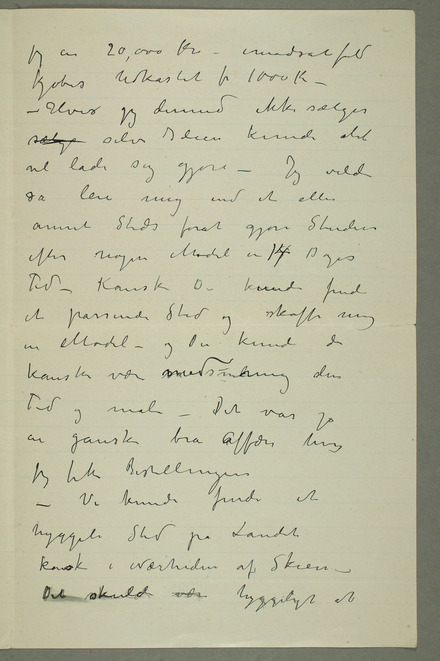 jeg en 20,000 Kr –
kjøbes Udkastet for 1000 K –
– Hvis jeg ikke sælges
selve Ideen kunde det
vel lade sig gjøre – Jeg vilde
sa leie mig ind et eller
annet Steds forat gjøre Studier
efter nogen Model en 14 Dages
Tid – Kanske De kunde finde
et passende Sted og skaffe mig
en Model – og De kunde da
kanske være med mig den
Tid og male – Det var jo
en ganske bra Affære hvis
jeg fik Bestillingen
– Vi kunde finde et
hyggeligt Sted på Landet
kansk i nærheden af Skien –
Det skulde være hyggeligt at